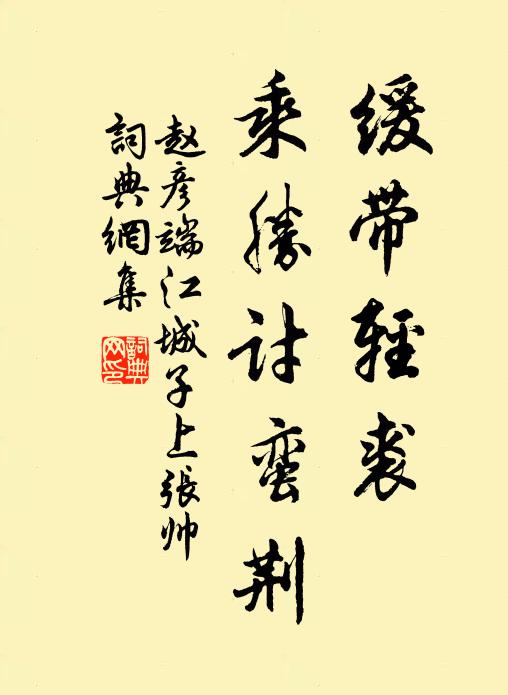 缓带轻裘
乘胜讨蛮荆
赵彦端江城子上張帅
詞典網集
詞典网印